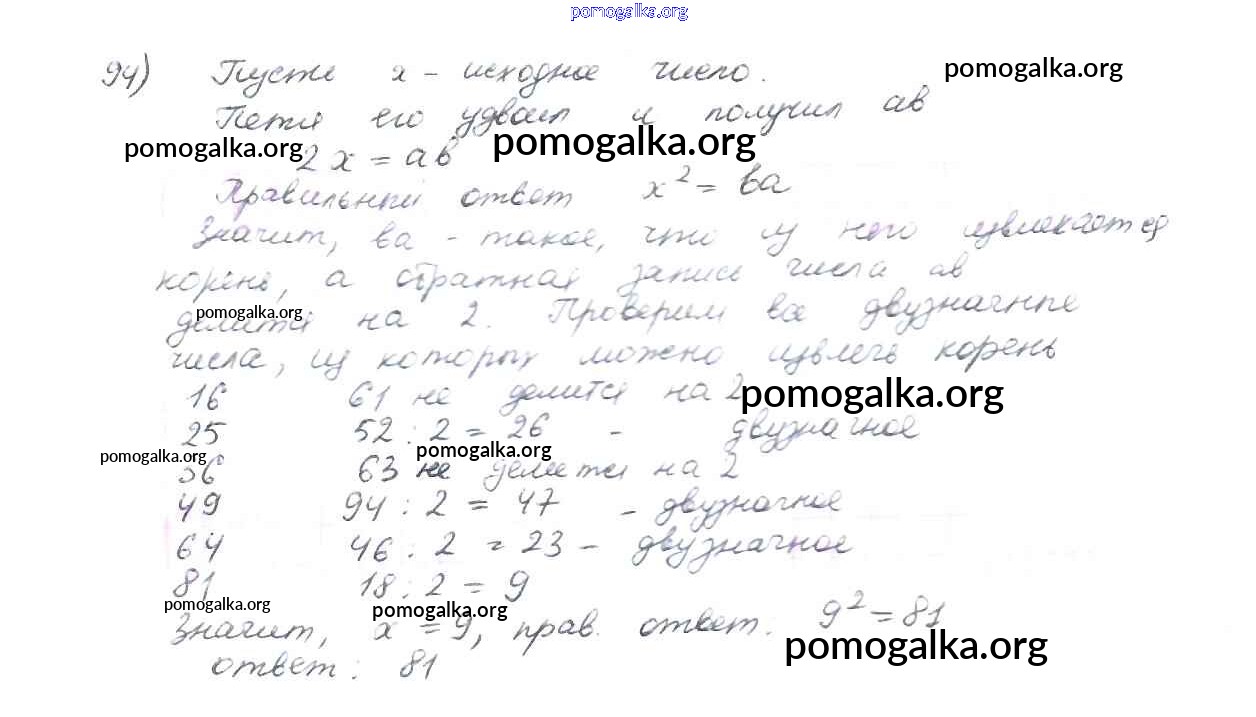 pomogalka.org
94) Пусть x - исходное число. pomogalka.org
Петя его удвоил и получил ав
pomogalka.org 2x = ав pomogalka.org
Правильный ответ x² = ва
Значит, ва - такое, что из него извлекается
корень, а обратная запись числа ав
pomogalka.org
делится на 2. Проверим все двузначные
числа, из которых можно извлечь корень
16 61 не делится на 2 pomogalka.org
25 52 : 2 = 26 - двузначное
pomogalka.org pomogalka.org
36 63 не делится на 2
49 94 : 2 = 47 - двузначное
64 46 : 2 = 23 - двузначное
81 18 : 2 = 9
pomogalka.org pomogalka.org
Значит, x = 9, прав. ответ: 9² = 81
pomogalka.org
ответ: 81